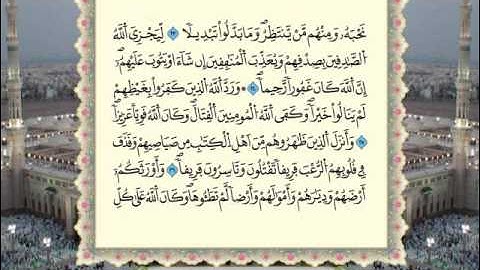 نَحْبَهُۥ وَمِنْهُم مَّن يَنتَظِرُ وَمَا بَدَّلُوا۟ تَبْدِيلًا ٢٣ لِّيَجْزِىَ ٱللَّهُ
ٱلصَّٰدِقِينَ بِصِدْقِهِمْ وَيُعَذِّبَ ٱلْمُنَٰفِقِينَ إِن شَآءَ أَوْ يَتُوبَ عَلَيْهِمْ
إِنَّ ٱللَّهَ كَانَ غَفُورًا رَّحِيمًا ٢٤ وَرَدَّ ٱللَّهُ ٱلَّذِينَ كَفَرُوا۟ بِغَيْظِهِمْ
لَمْ يَنَالُوا۟ خَيْرًا وَكَفَى ٱللَّهُ ٱلْمُؤْمِنِينَ ٱلْقِتَالَ وَكَانَ ٱللَّهُ قَوِيًّا عَزِيزًا
٢٥ وَأَنزَلَ ٱلَّذِينَ ظَٰهَرُوهُم مِّنْ أَهْلِ ٱلْكِتَٰبِ مِن صَيَاصِيهِمْ وَقَذَفَ
فِى قُلُوبِهِمُ ٱلرُّعْبَ فَرِيقًا تَقْتُلُونَ وَتَأْسِرُونَ فَرِيقًا ٢٦ وَأَوْرَثَكُمْ
أَرْضَهُمْ وَدِيَٰرَهُمْ وَأَمْوَٰلَهُمْ وَأَرْضًا لَّمْ تَطَـُٔوهَا وَكَانَ ٱللَّهُ عَلَىٰ كُلِّ